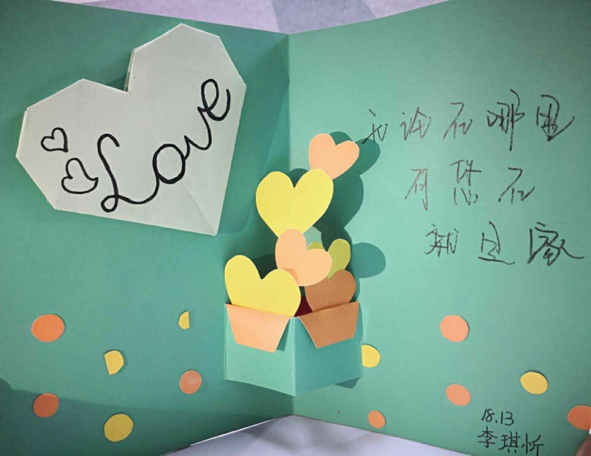 Love
无论在哪里
有您在
就是家
18.13
李琪忻